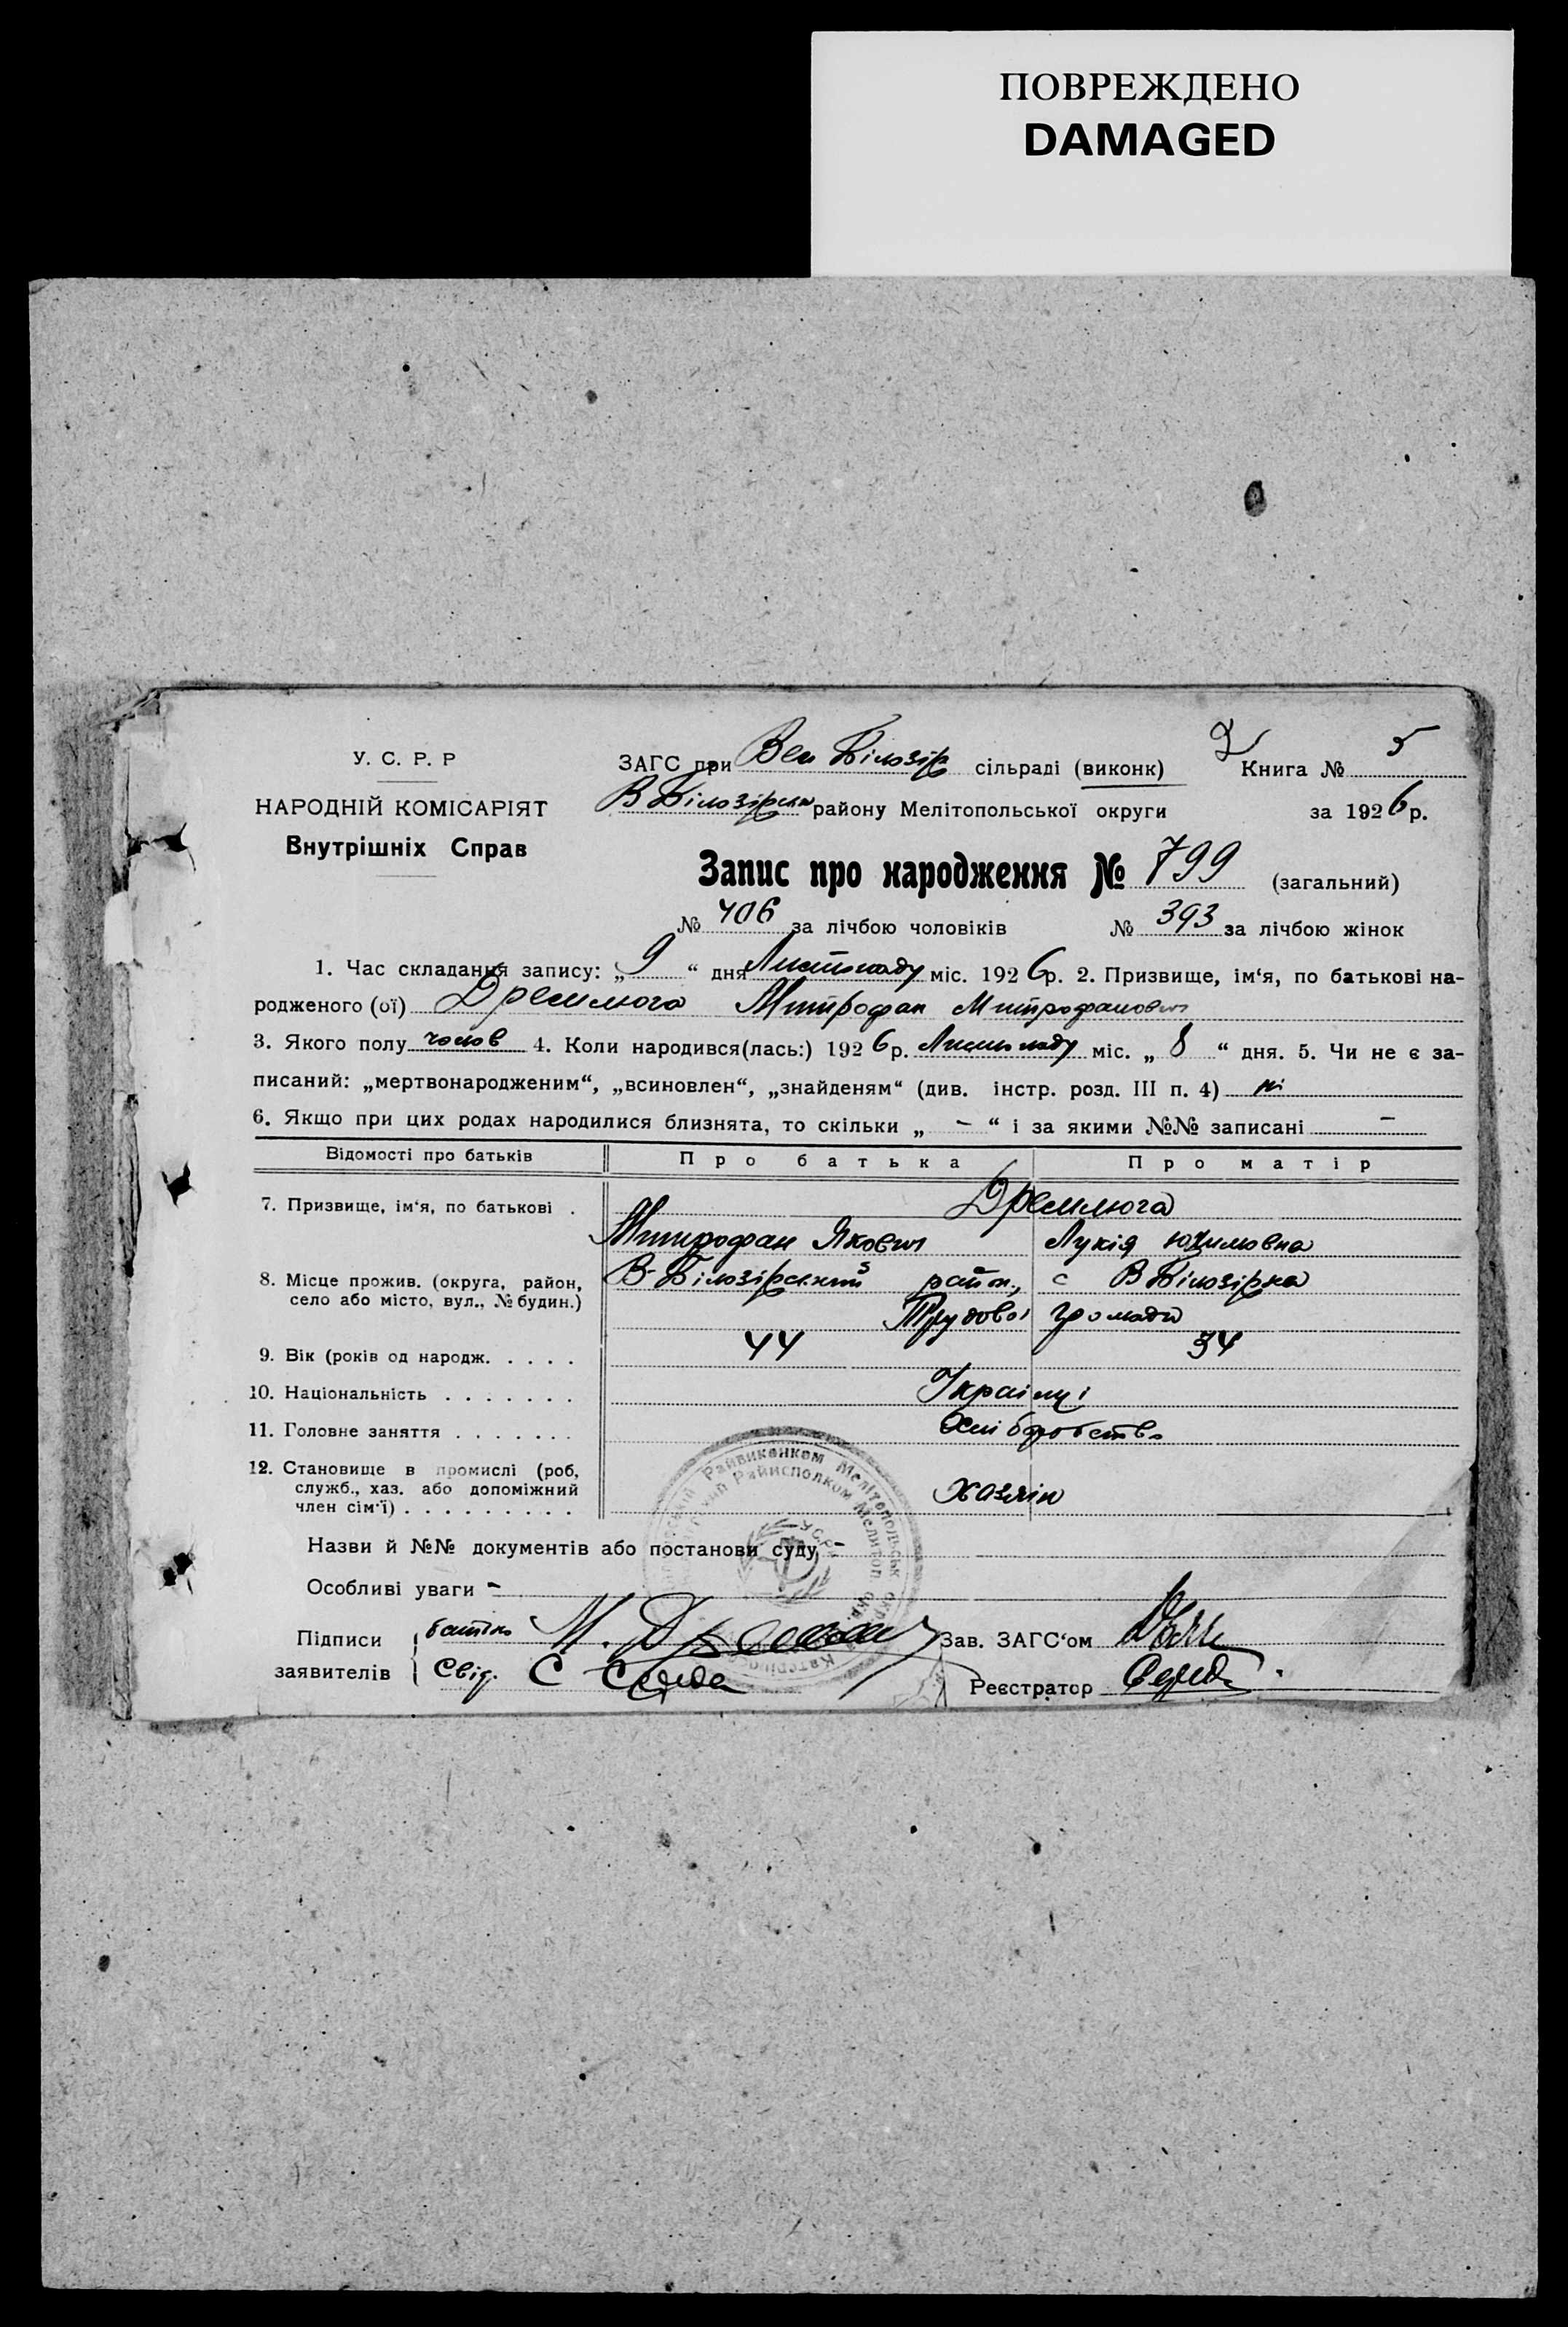 ПОВРЕЖДЕНО
DAMAGED
У. С. Р. Р
НАРОДНІЙ КОМІСАРІЯТ
Внутрішніх Справ
ЗАГС при Вел Білозір сільраді (виконк) Книга № 5
В Білозірськ району Мелітопольської округи за 1926 р.
Запис про народження № 799 (загальний)
№ 406 за лічбою чоловіків № 393 за лічбою жінок
1. Час складання запису: „9“ дня Листопаду міс. 1926 р. 2. Призвище, ім‘я, по батькові на-
родженого (ої) Дремлюга Митрофан Митрофанович
3. Якого полу чолов 4. Коли народився(лась:) 1926 р. Листопаду міс. „8“ дня. 5. Чи не є за-
писаний: „мертвонародженим“, „всиновлен“, „знайденям“ (див. інстр. розд. III п. 4) ні
6. Якщо при цих родах народилися близнята, то скільки „ – “ і за якими №№ записані –
Відомості про батьків Про батька Про матір
7. Призвище, ім‘я, по батькові . Дремлюга
Митрофан Якович Лукія Юхимовна
8. Місце прожив. (округа, район, В-Білозірський район, с В Білозірка
село або місто, вул., № будин.)
Трудової громади
9. Вік (років од народж. . . . . 44 34
10. Національність . . . . . . . Українці
11. Головне заняття . . . . . . . Хліборобство
12. Становище в промислі (роб,
служб., хаз. або допоміжний хазяїн
член сім‘ї) . . . . . . . . .
Назви й №№ документів або постанови суду –
Особливі уваги –
Підписи батько М. Зав. ЗАГС‘ом
заявителів Свід. С Середа Реєстратор Серед
Райвиконком Мелітопольськ окр
Райисполком Мелитоп окр.
УСРР